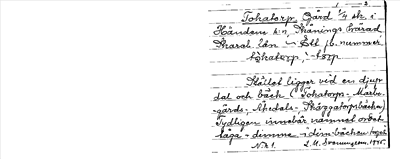 1 2
Tohatorp. Gård 1/4 sk. i
Händene s:n, Skånings härad
Skarab. län – Ett jb. nummer
tohatorp, - torp
Stället ligger vid en djup
dal och bäck (Tohatorps-, Marbo-
-gårds-, Stedals-, Skäggatorpsbäcken)
Tydligen innebär namnet ordet
tåga - dimma i dimbäcken
N:r 1. 1945.